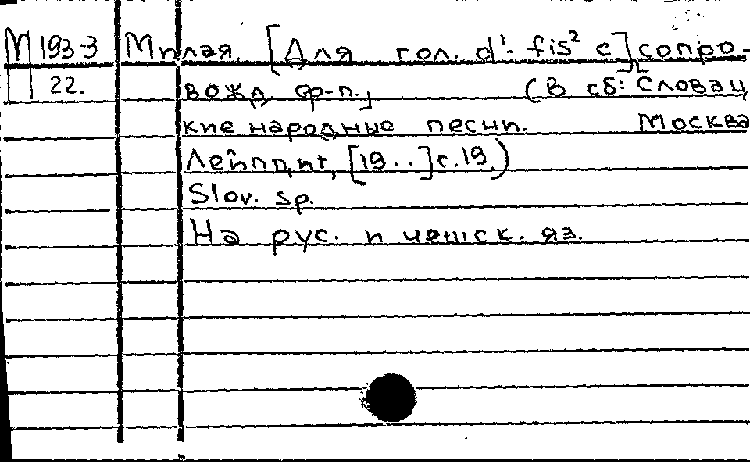 М 193-3 Милая. [Для гол. d¹- fis² с] сопро-
22. вожд. ф-п.] (В сб: Словац
кие народные песни. Москва
Лейпциг, [19..] с. 19.)
Slov. sp.
На рус. и чешск. яз.